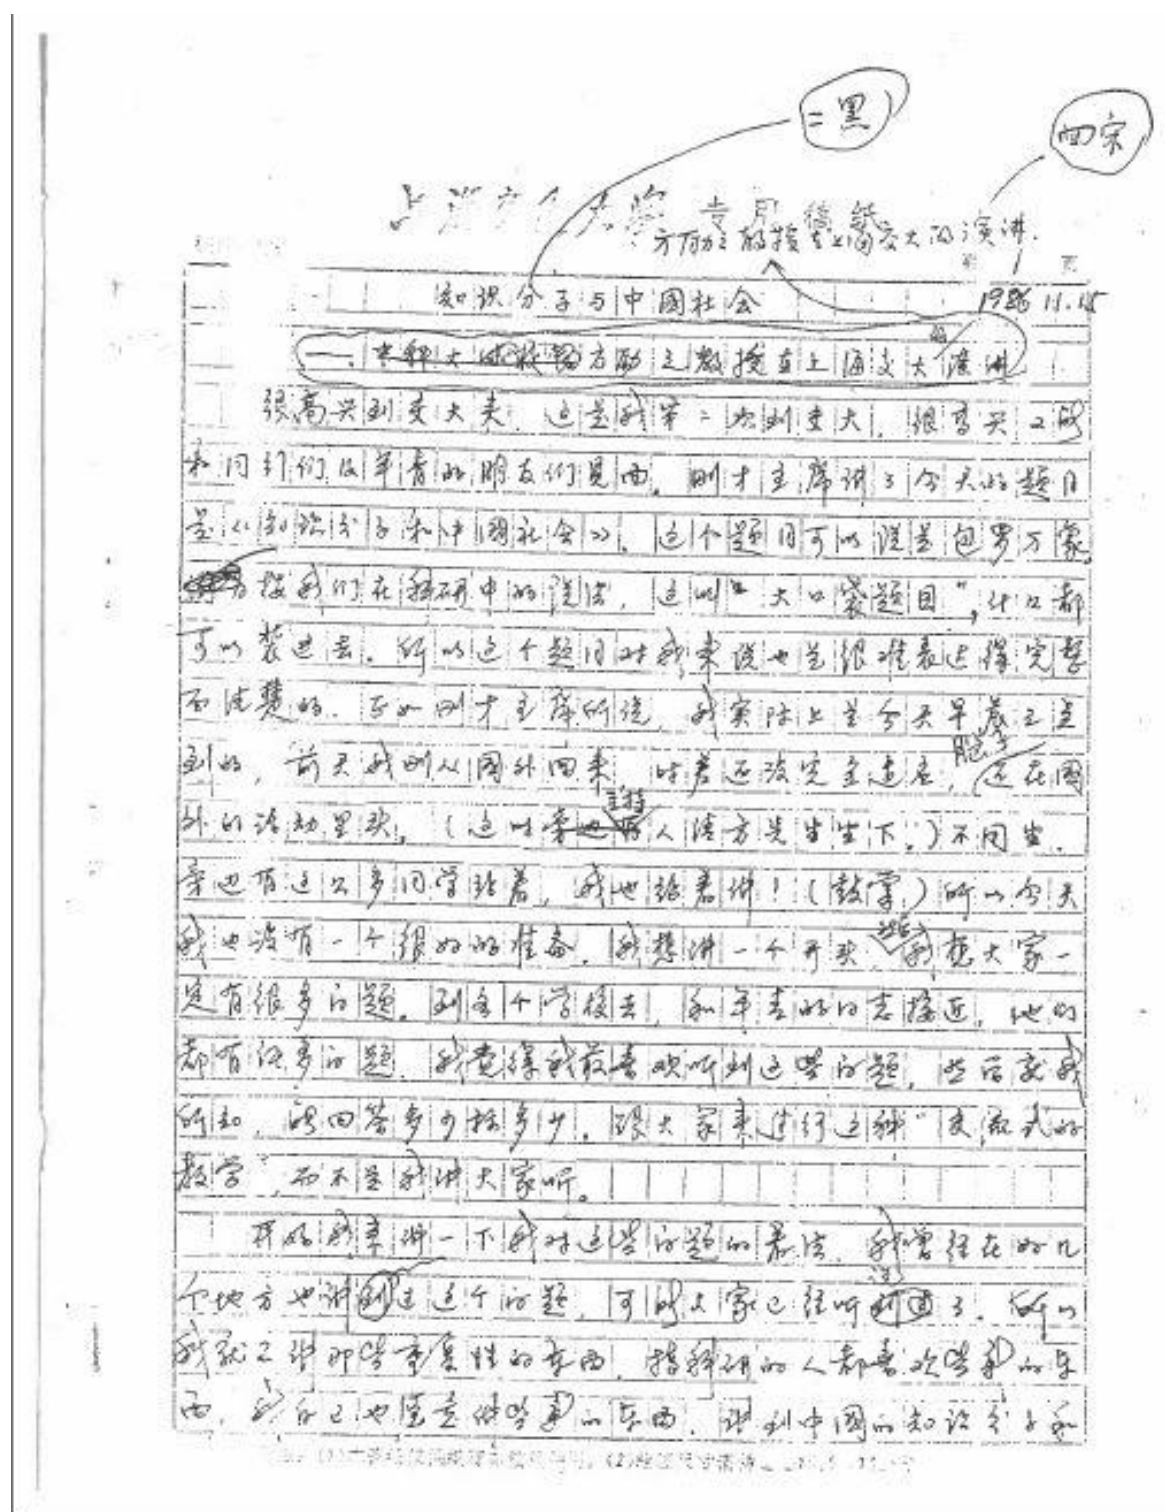 二黑
四宋
上海交通大学 专用稿纸
方励之教授在上海交大的演讲.
知识分子与中国社会 1986 11.15
方励之教授在上海交大的演讲
很高兴到交大来,这是我第二次到交大,很高兴又能
和同行们及年青的朋友们見面。刚才主席讲了今天的题目
是《知识分子和中国社会》。这个题目可以说是包罗万象,
按我们在科研中的说法,这叫“大口袋题目”,什么都
可以装进去。所以这个题目对我来说也是很难表达得完整
而清楚的。正如刚才主席所说,我实际上是今天早晨三点
到的,前天我刚从国外回来,时差还没完全适应,脑子还在国
外的活动里头。(这时主持人请方先生坐下。)不用坐,
旁边有这么多同学站着,我也站着讲!(鼓掌)所以今天
我也没有一个很好的准备。我想讲一个开头,我想大家一
定有很多问题。到各个学校去,和年青的同志接近,他们
都有许多问题,我觉得我最喜欢听到这些问题,然后就我
所知,能回答多少括多少。跟大家来进行这种“交流式的
教学”,而不是我讲大家听。
我来讲一下我对这些问题的看法,我曾经在好几
个地方也讲到过这个问题,可能大家已经听说了。所以
我就不讲那些重复性的东西,搞科研的人都喜欢些新的东
西,我自己也愿意做些新的东西。讲到中国的知识分子和